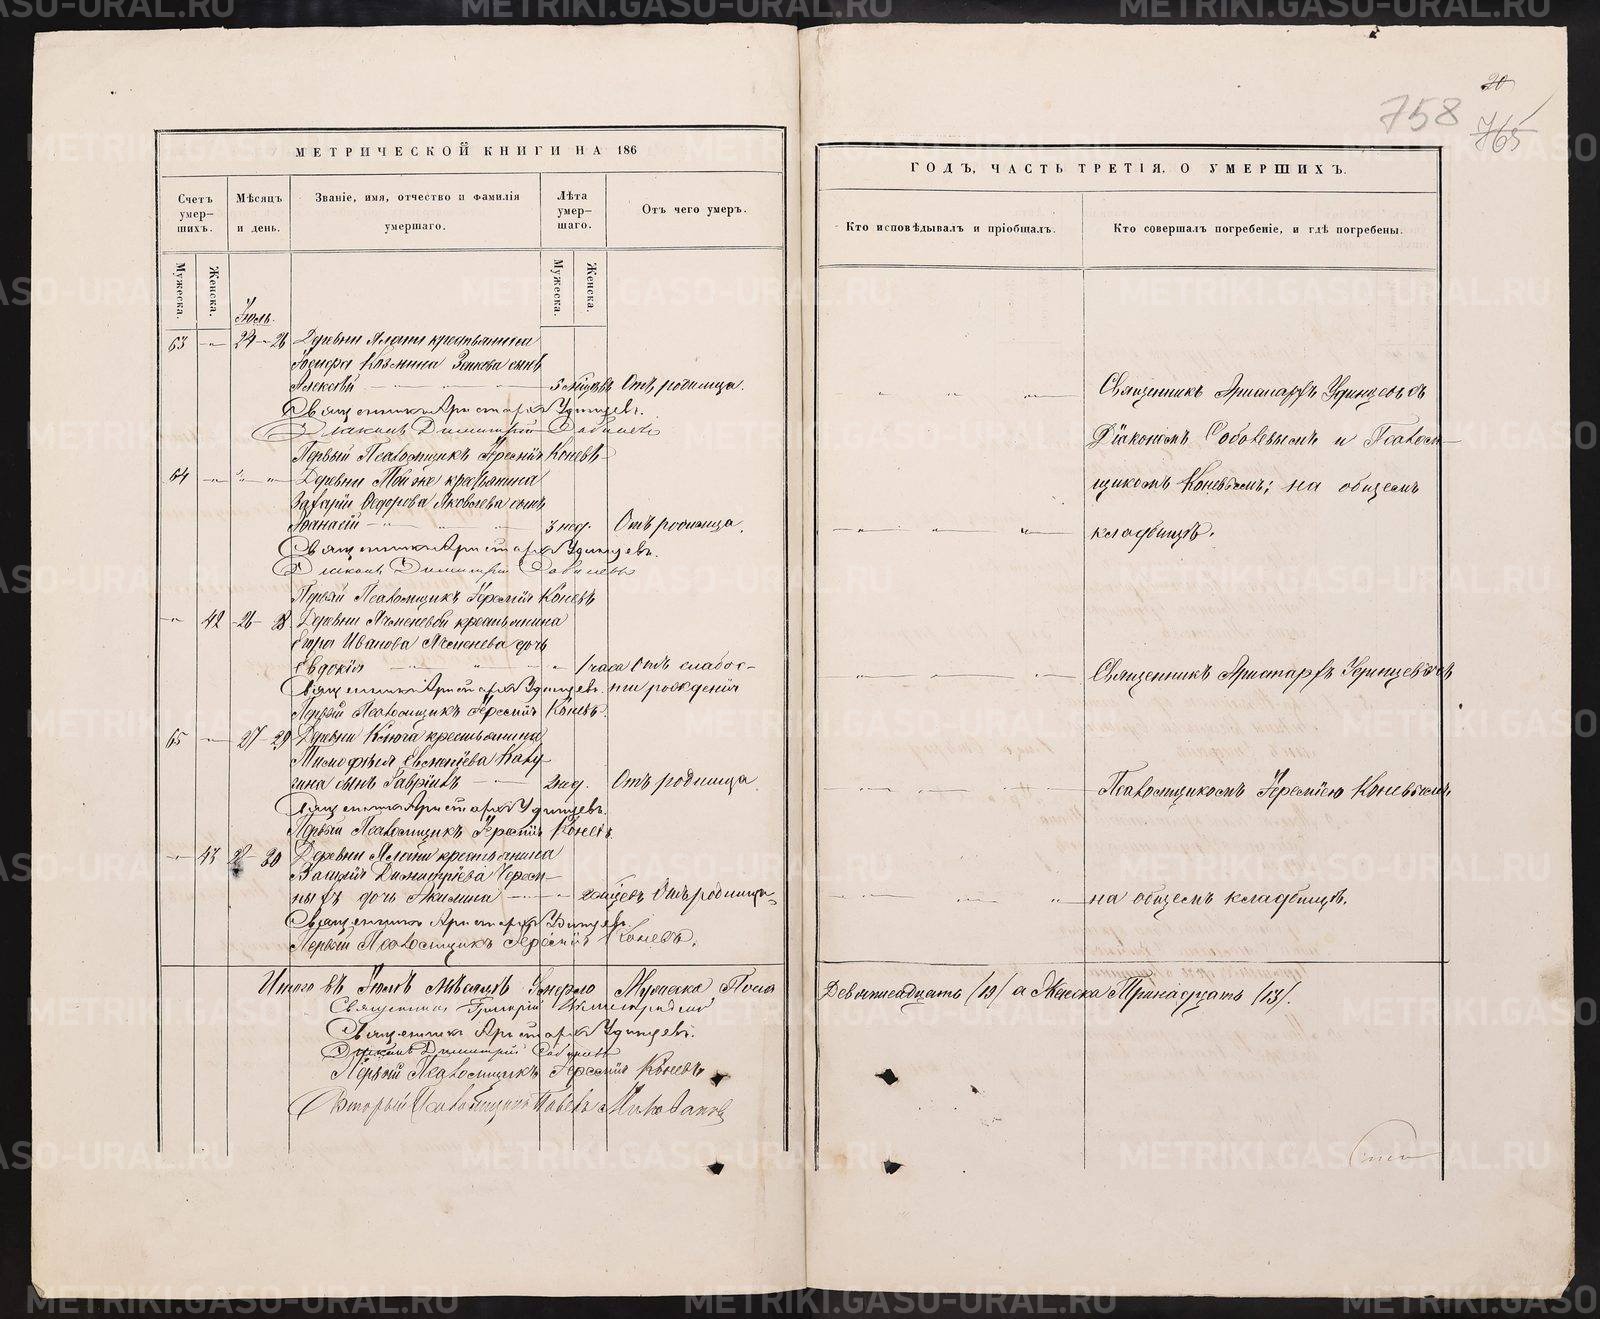 МЕТРИЧЕСКОЙ КНИГИ НА 186
Счетъ умер-шихъ.
Мѣсяцъ и день.
Званіе, имя, отчество и фамилія умершаго.
Лѣта умер-шаго.
Отъ чего умеръ.
Мужеска.
Женска.
Мужеска.
Женска.
Іюль.
63 24 26 Деревни крестьянина
Козмина сынъ
Алексѣй 5 Отъ родимца.
Священникъ Аристархъ Удинцевъ.
Діаконъ Димитрій
Первый Псаломщикъ Іеремія Коневъ
64 Деревни крестьянина
Захарія Ѳедорова Яковлева сынъ
Аѳанасій 3 нед. Отъ родимца.
Священникъ Аристархъ Удинцевъ.
Діаконъ Димитрій
Первый Псаломщикъ Іеремія Коневъ
42 26 28 Деревни Ячменевой крестьянина
Егора Иванова Ячменева дочь
Евдокія 1 часа Отъ слабос-
Священникъ Аристархъ Удинцевъ. ти рожденія
Первый Псаломщикъ Іеремія Коневъ.
65 27 29 Деревни Ключа крестьянина
Тимофея Евгеніева
сынъ Гавріилъ 2 нед. Отъ родимца
Священникъ Аристархъ Удинцевъ.
Первый Псаломщикъ Іеремія Коневъ.
43 28 30 Деревни крестьянина
Василія Димитріева Черем-
ныхъ дочь Акилина Отъ родимца
Священникъ Аристархъ Удинцевъ
Первый Псаломщикъ Іеремія Коневъ.
Итого въ Іюлѣ мѣсяцѣ Умерло Мужеска Пола
Священникъ Григорій
Священникъ Аристархъ Удинцевъ.
Діаконъ Димитрій
Первый Псаломщикъ Іеремія Коневъ
Вторый Псаломщикъ Павелъ
20
758
765
ГОДЪ, ЧАСТЬ ТРЕТІЯ, О УМЕРШИХЪ.
Кто исповѣдывалъ и пріобщалъ.
Кто совершалъ погребеніе, и гдѣ погребены.
Священникъ Аристархъ Удинцевъ съ
Діакономъ и Псалом-
щикомъ Коневымъ; на общемъ
кладбищѣ.
Священникъ Аристархъ Удинцевъ съ
Псаломщикомъ Іереміею Коневымъ
на общемъ кладбищѣ.
Девятнадцать (19) а Женска Тринадцать (13).
METRIKI.GASO-URAL.RU